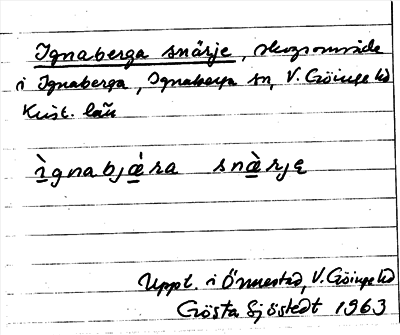 Ignaberga snärje, skogsområde
i Ignaberga, Ignaberga sn, V. Göinge hd
Krist. län
ìgnabjǽra snæ̀rję
Uppt. i Önnestad, V. Göinge hd
Gösta Sjöstedt 1963